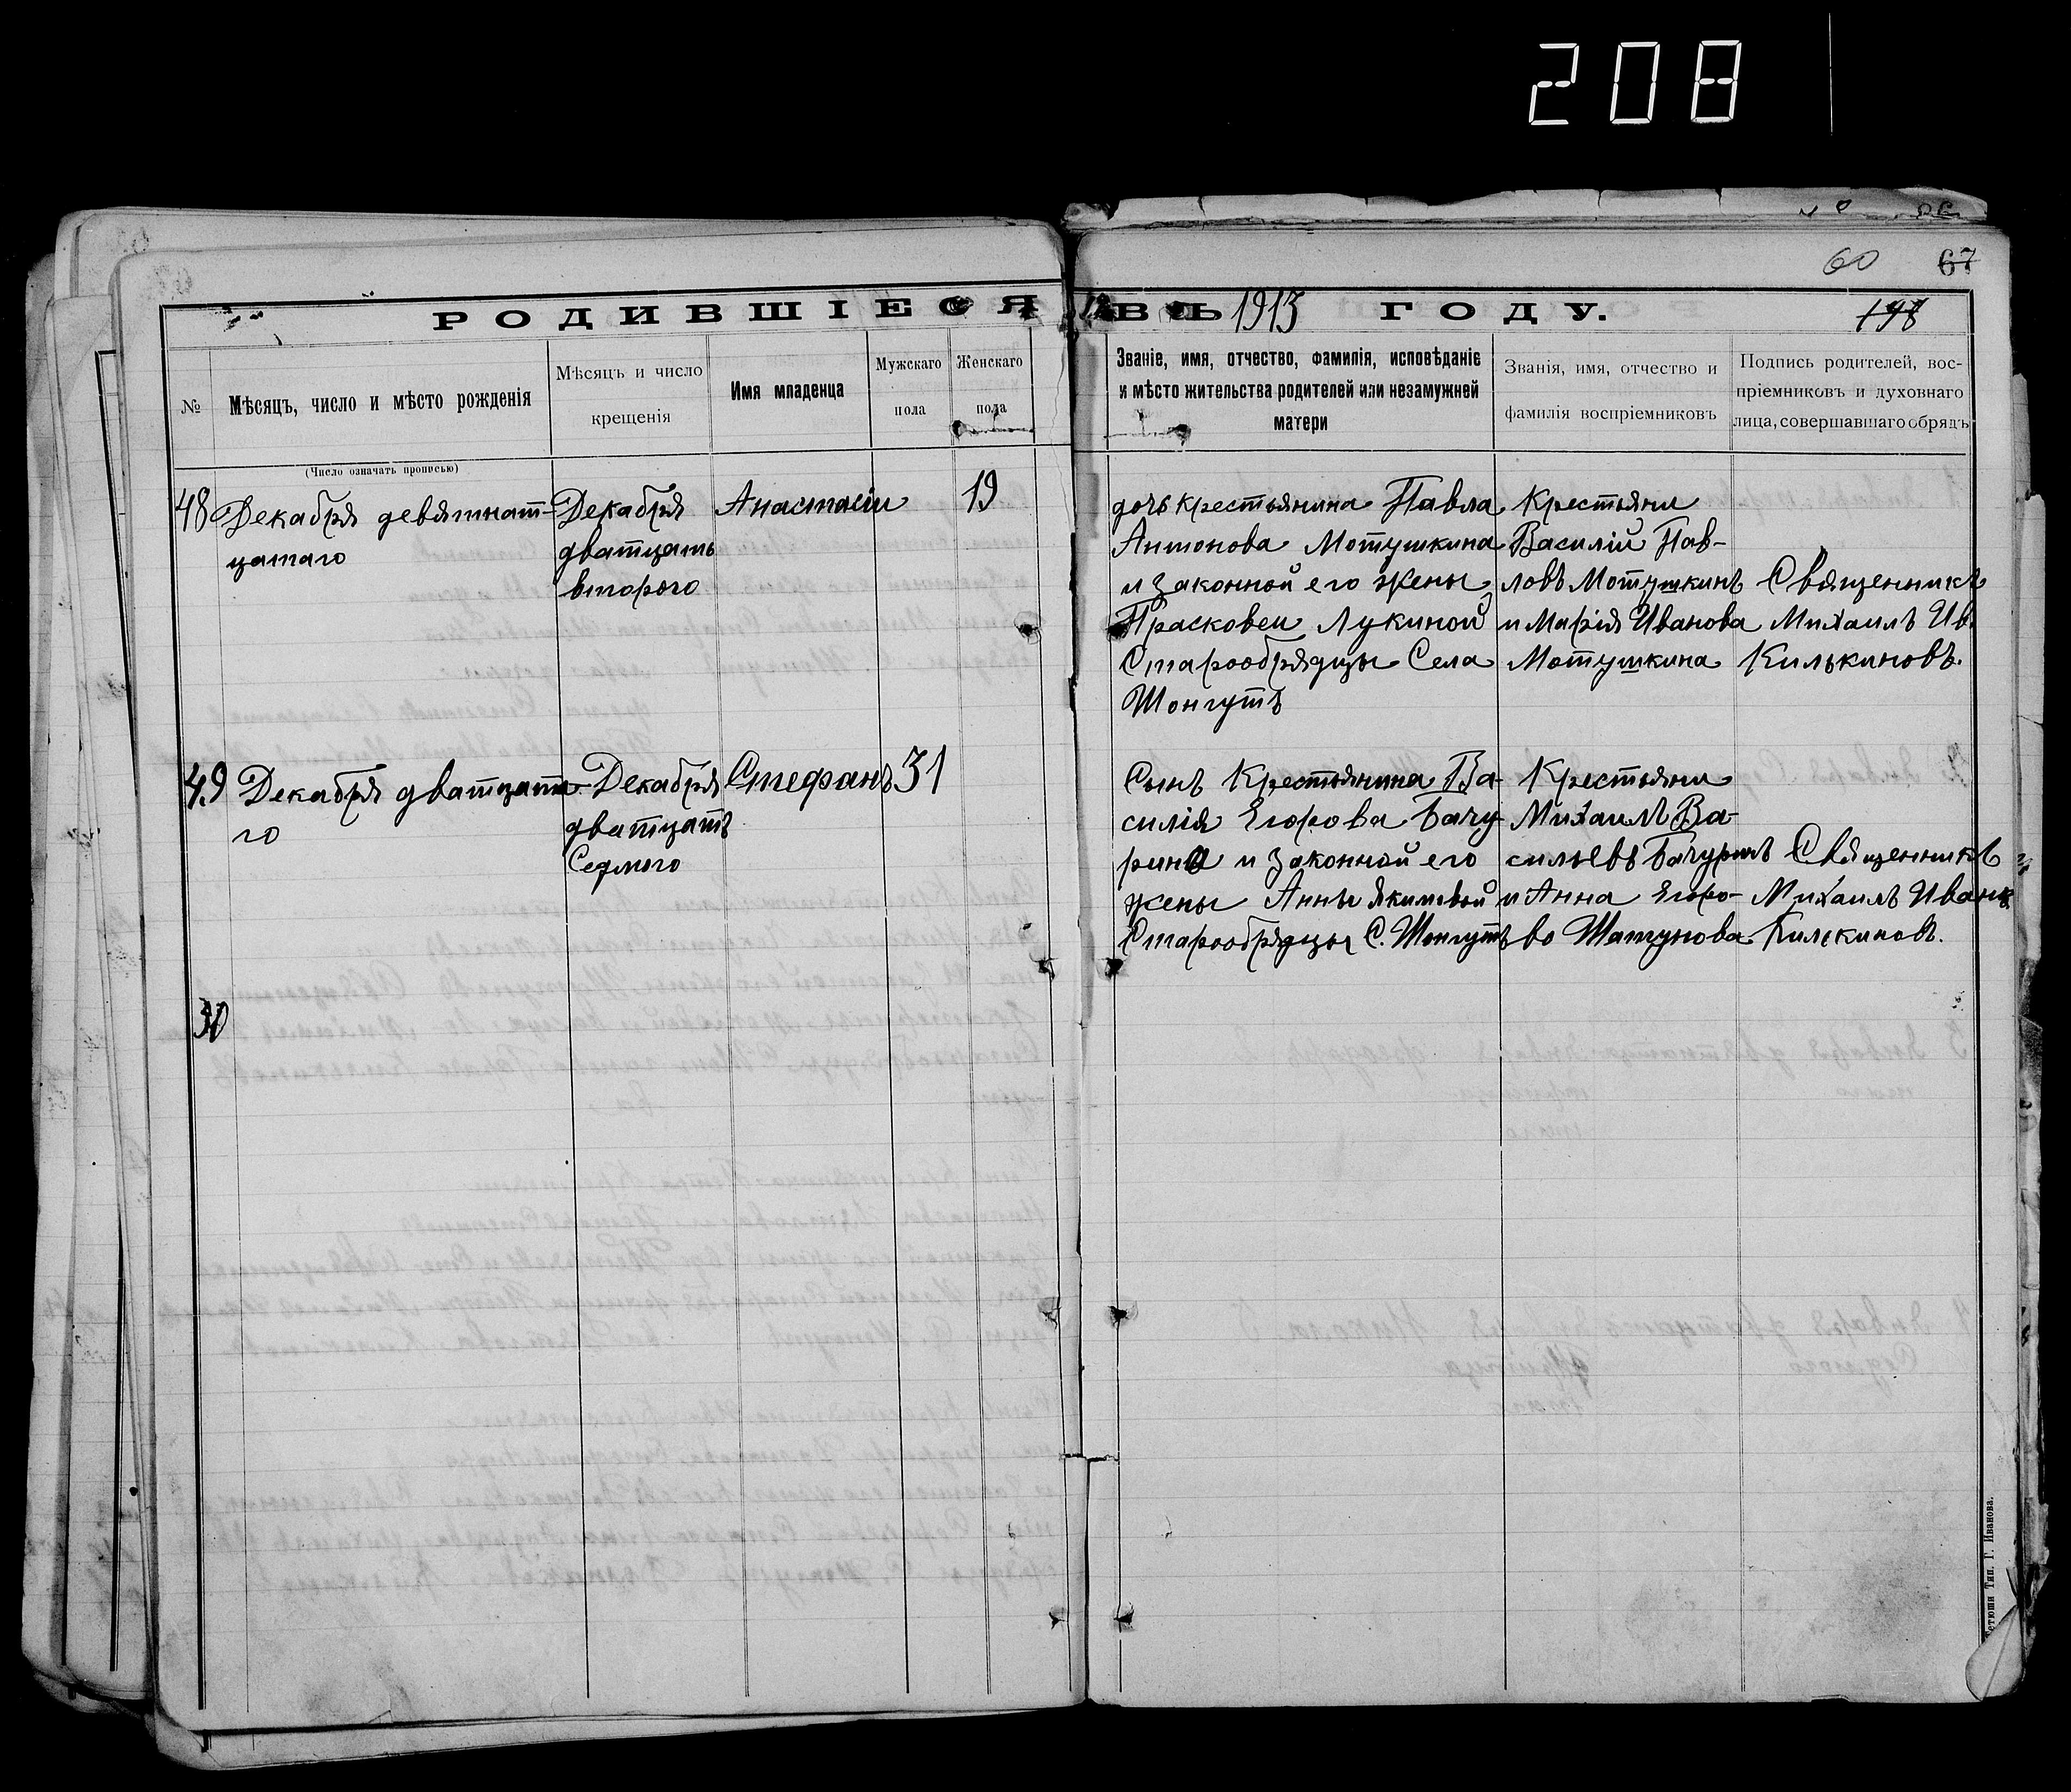 208
60 67
РОДИВШІЕСЯ ВЪ 1913 ГОДУ.
198
№
Мѣсяцъ, число и мѣсто рожденія
Мѣсяцъ и число
крещенія
Имя младенца
Мужскаго
пола
Женскаго
пола
Званіе, имя, отчество, фамилія, исповѣданіе
и мѣсто жительства родителей или незамужней
матери
Званія, имя, отчество и
фамилія воспріемниковъ
Подпись родителей, вос-
пріемниковъ и духовнаго
лица, совершавшаго обрядъ
(Число означать прописью)
48
Декабря девятнат-
цатаго
Декабря
дватцать
второго
Анастасіи
19
дочь крестьянина Павла
Антонова Мотушкина
и законной его жены
Прасковеи Лукиной
Старообрядцы Села
Шонгутъ
Крестьяни
Василій Пав-
ловъ Мотушкинъ
и Марія Иванова
Мотушкина
Священникъ
Михаилъ Ив.
Килькиновъ.
49
Декабря дватцата-
го
Декабря
дватцать
Седмого
Стефанъ
31
Сынъ Крестьянина Ва-
силія Егорова Бачу-
рина и законной его
жены Анны Якимовой
Старообрядцы С. Шонгутъ
Крестьяни
Михаилъ Ва-
сильевъ Бачуринъ
и Анна Егоро-
во Шатунова
Священникъ
Михаилъ Иванъ
Килькиновъ.
50
Тетюши Тип. Г. Иванова.